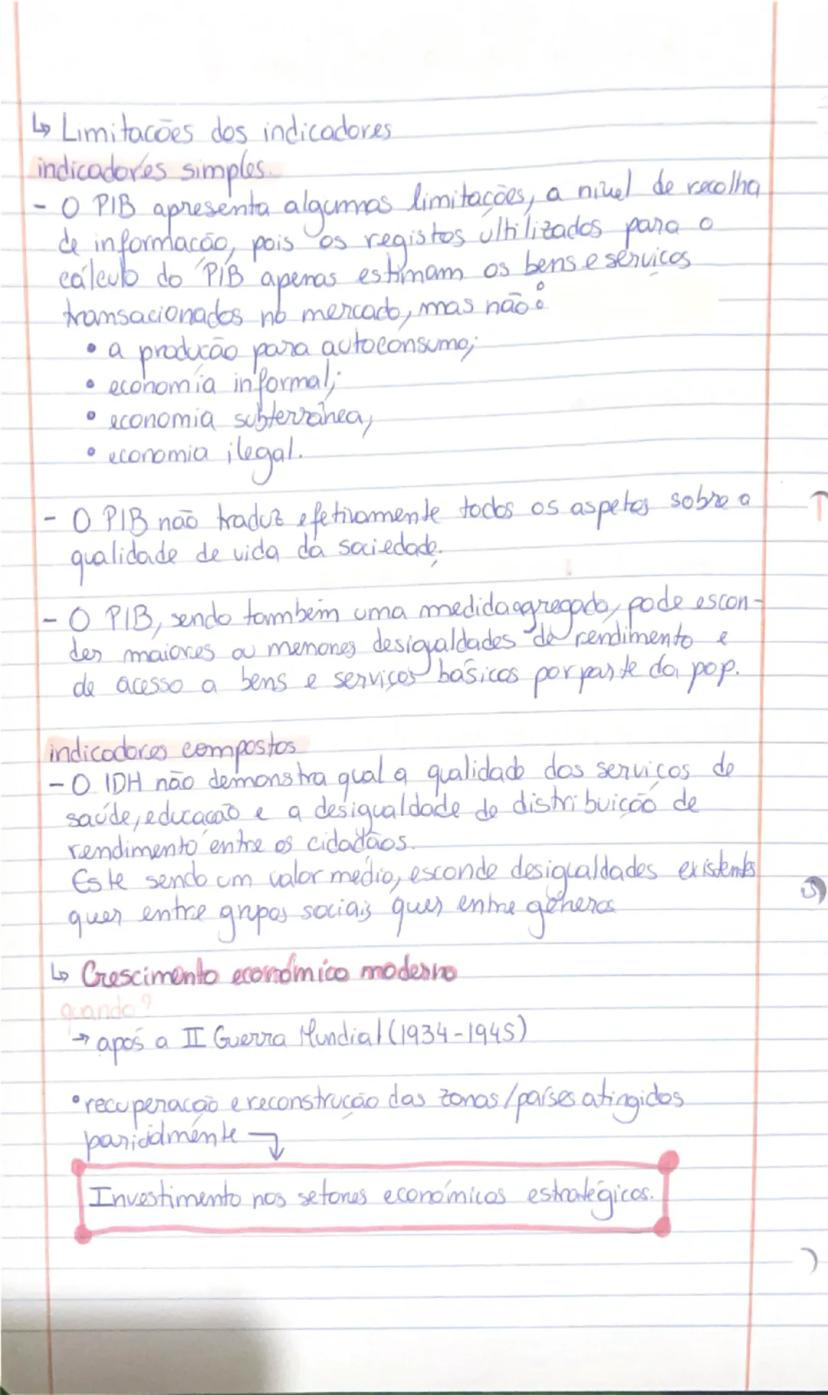 ↳ Limitacões dos indicadores
indicadores simples.
- O PIB apresenta algumas limitações, a nivel de recolha
de informacão, pois os registos últilizados para o
cálculo do PIB apenas estimam os bens e serviços
transacionados no mercado, mas não:
• a producão para autoconsumo;
• economia informal;
• economia subterrânea;
• economia ilegal.
- O PIB não traduz efetivamente todos os aspetos sobre a
qualidade de vida da sociedade.
- O PIB, sendo também uma medida agregada, pode escon-
der maiores ou menores desigaldades de rendimento e
de acesso a bens e serviços básicos por parte da pop.
indicadores compostos
- O IDH não demonstra qual a qualidade dos serviços de
saúde, educação e a desigualdade de distribuição de
rendimento entre os cidadãos.
Este sendo um valor médio, esconde desigualdades existentes
quer entre grupos sociais quer entre géneros
↳ Crescimento económico moderno
quando?
→ após a II Guerra Mundial (1934-1945)
• recuperação e reconstrução das zonas/países atingidos
Investimento nos setores económicos estratégicos.